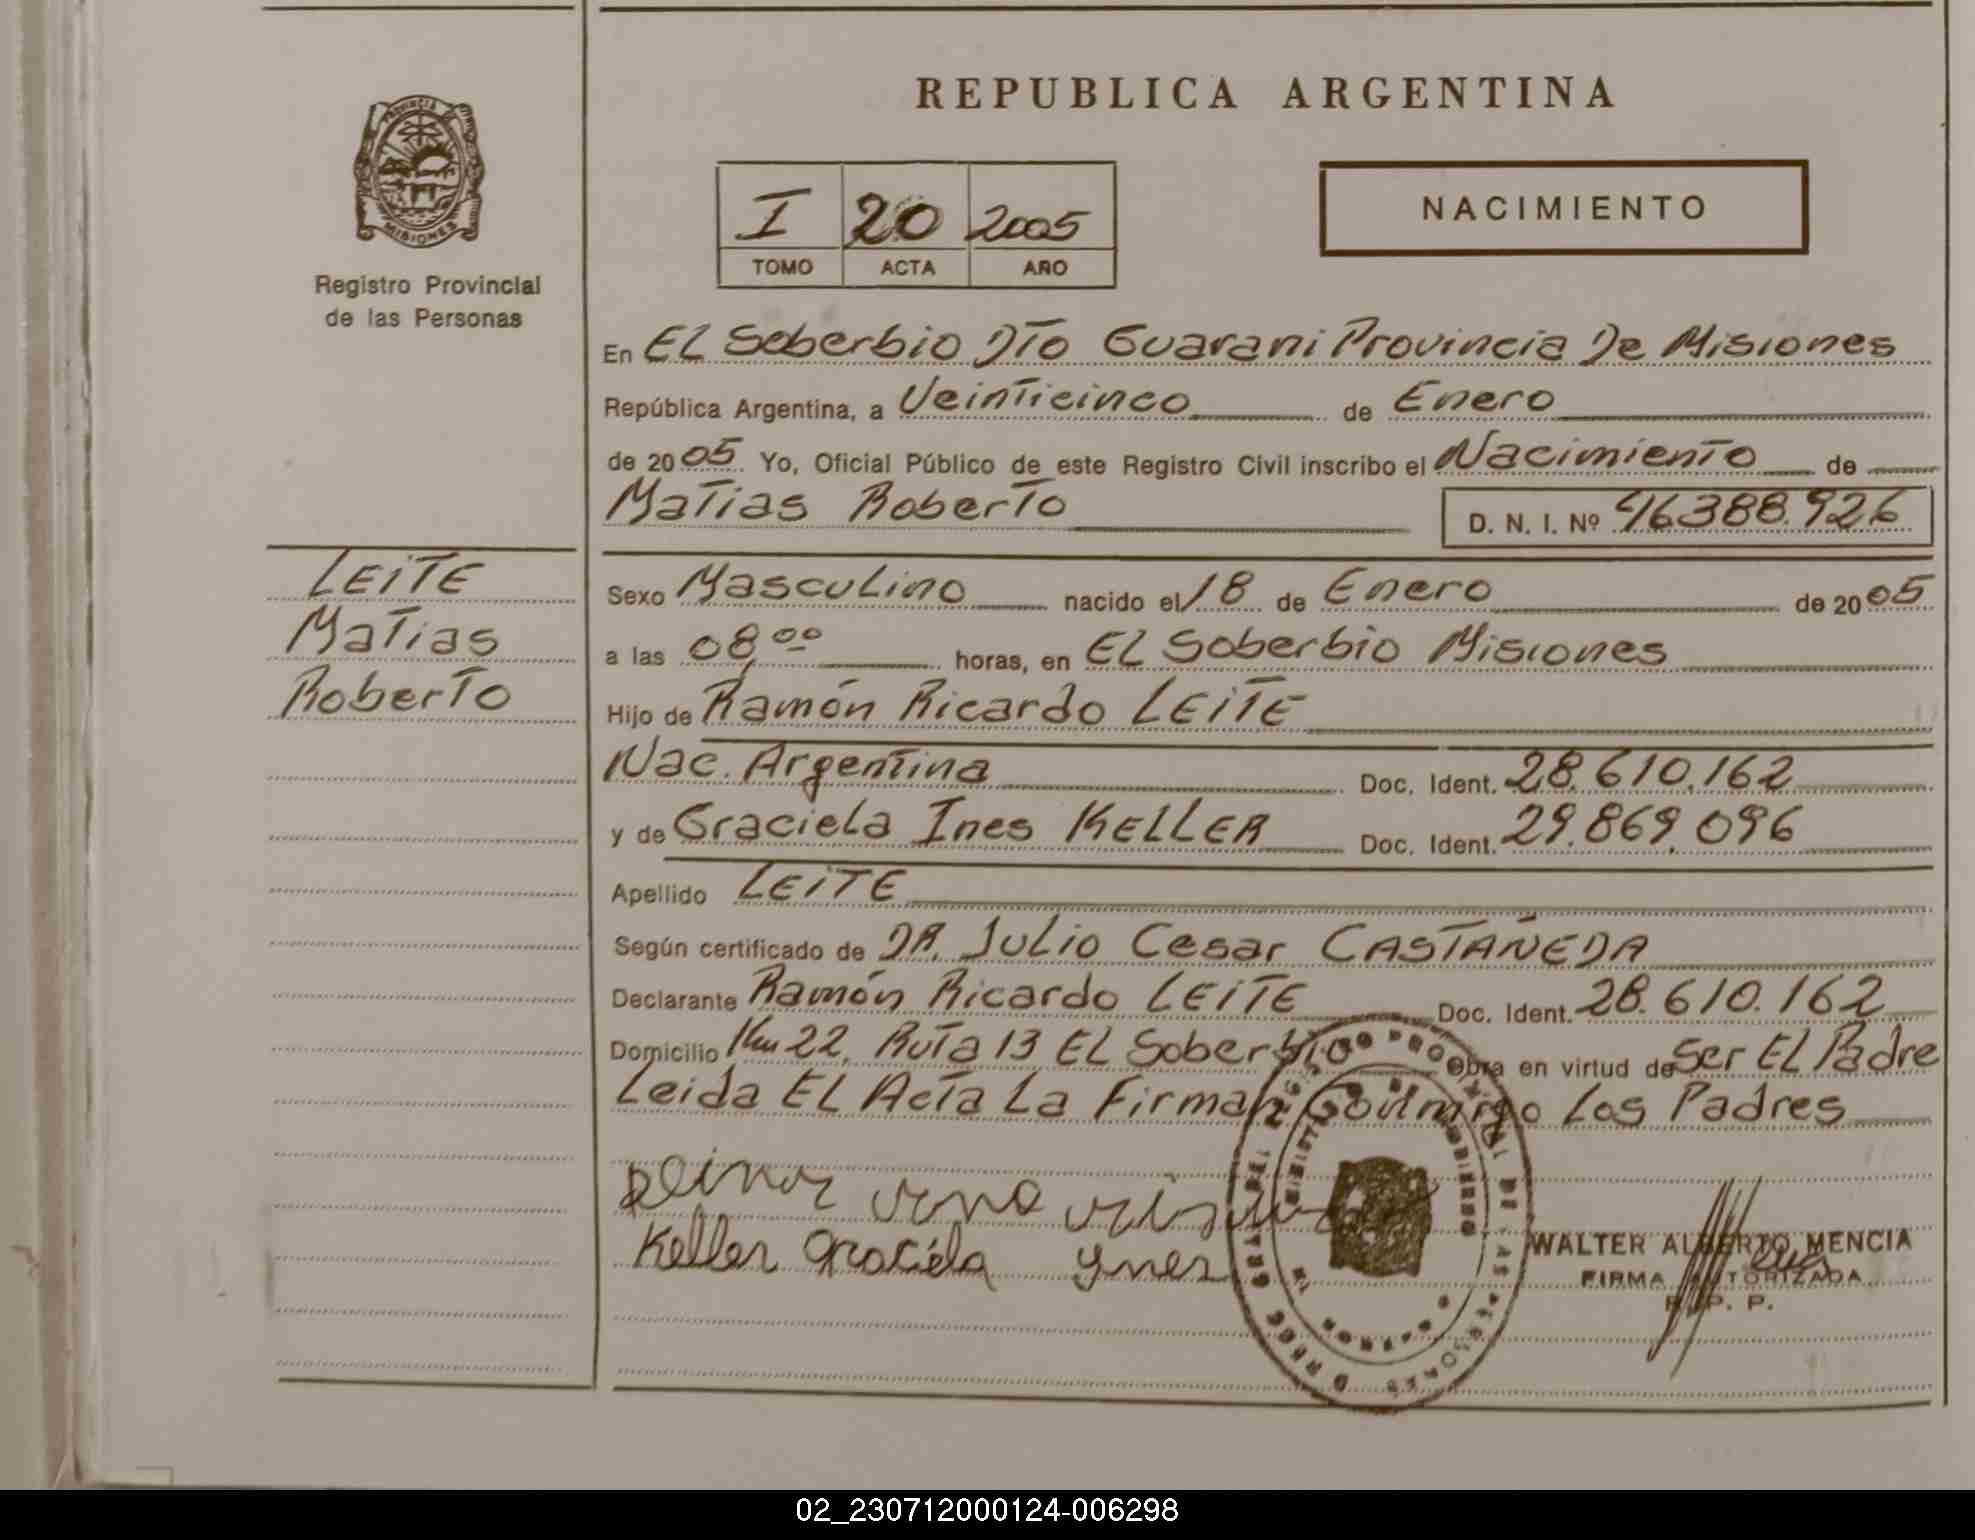 REPUBLICA ARGENTINA
PROVINCIA
MISIONES
Registro Provincial
de las Personas
I 20 2005
TOMO ACTA AÑO
NACIMIENTO
En EL Soberbio DTo Guarani Provincia De Misiones
República Argentina, a Veinticinco de Enero
de 2005 Yo, Oficial Público de este Registro Civil inscribo el Nacimiento de
Matias Roberto D. N. I. Nº 46388.926
LEiTE
Matias
Roberto
Sexo Masculino nacido el 18 de Enero de 2005
a las 08,00 horas, en EL Soberbio Misiones
Hijo de Ramón Ricardo LEiTE
Nac. Argentina Doc. Ident. 28.610.162
y de Graciela Ines KELLER Doc. Ident. 29.869.096
Apellido LEiTE
Según certificado de DR. Julio Cesar CASTAÑEDA
Declarante Ramón Ricardo LEiTE Doc. Ident. 28.610.162
Domicilio Km 22, Ruta 13 EL Soberbio Obra en virtud de Ser EL Padre
Leida EL Acta La Firman Conmigo Los Padres
Keller Graciela Ynes
WALTER ALBERTO MENCIA
FIRMA AUTORIZADA
R. P. P.
02_230712000124-006298